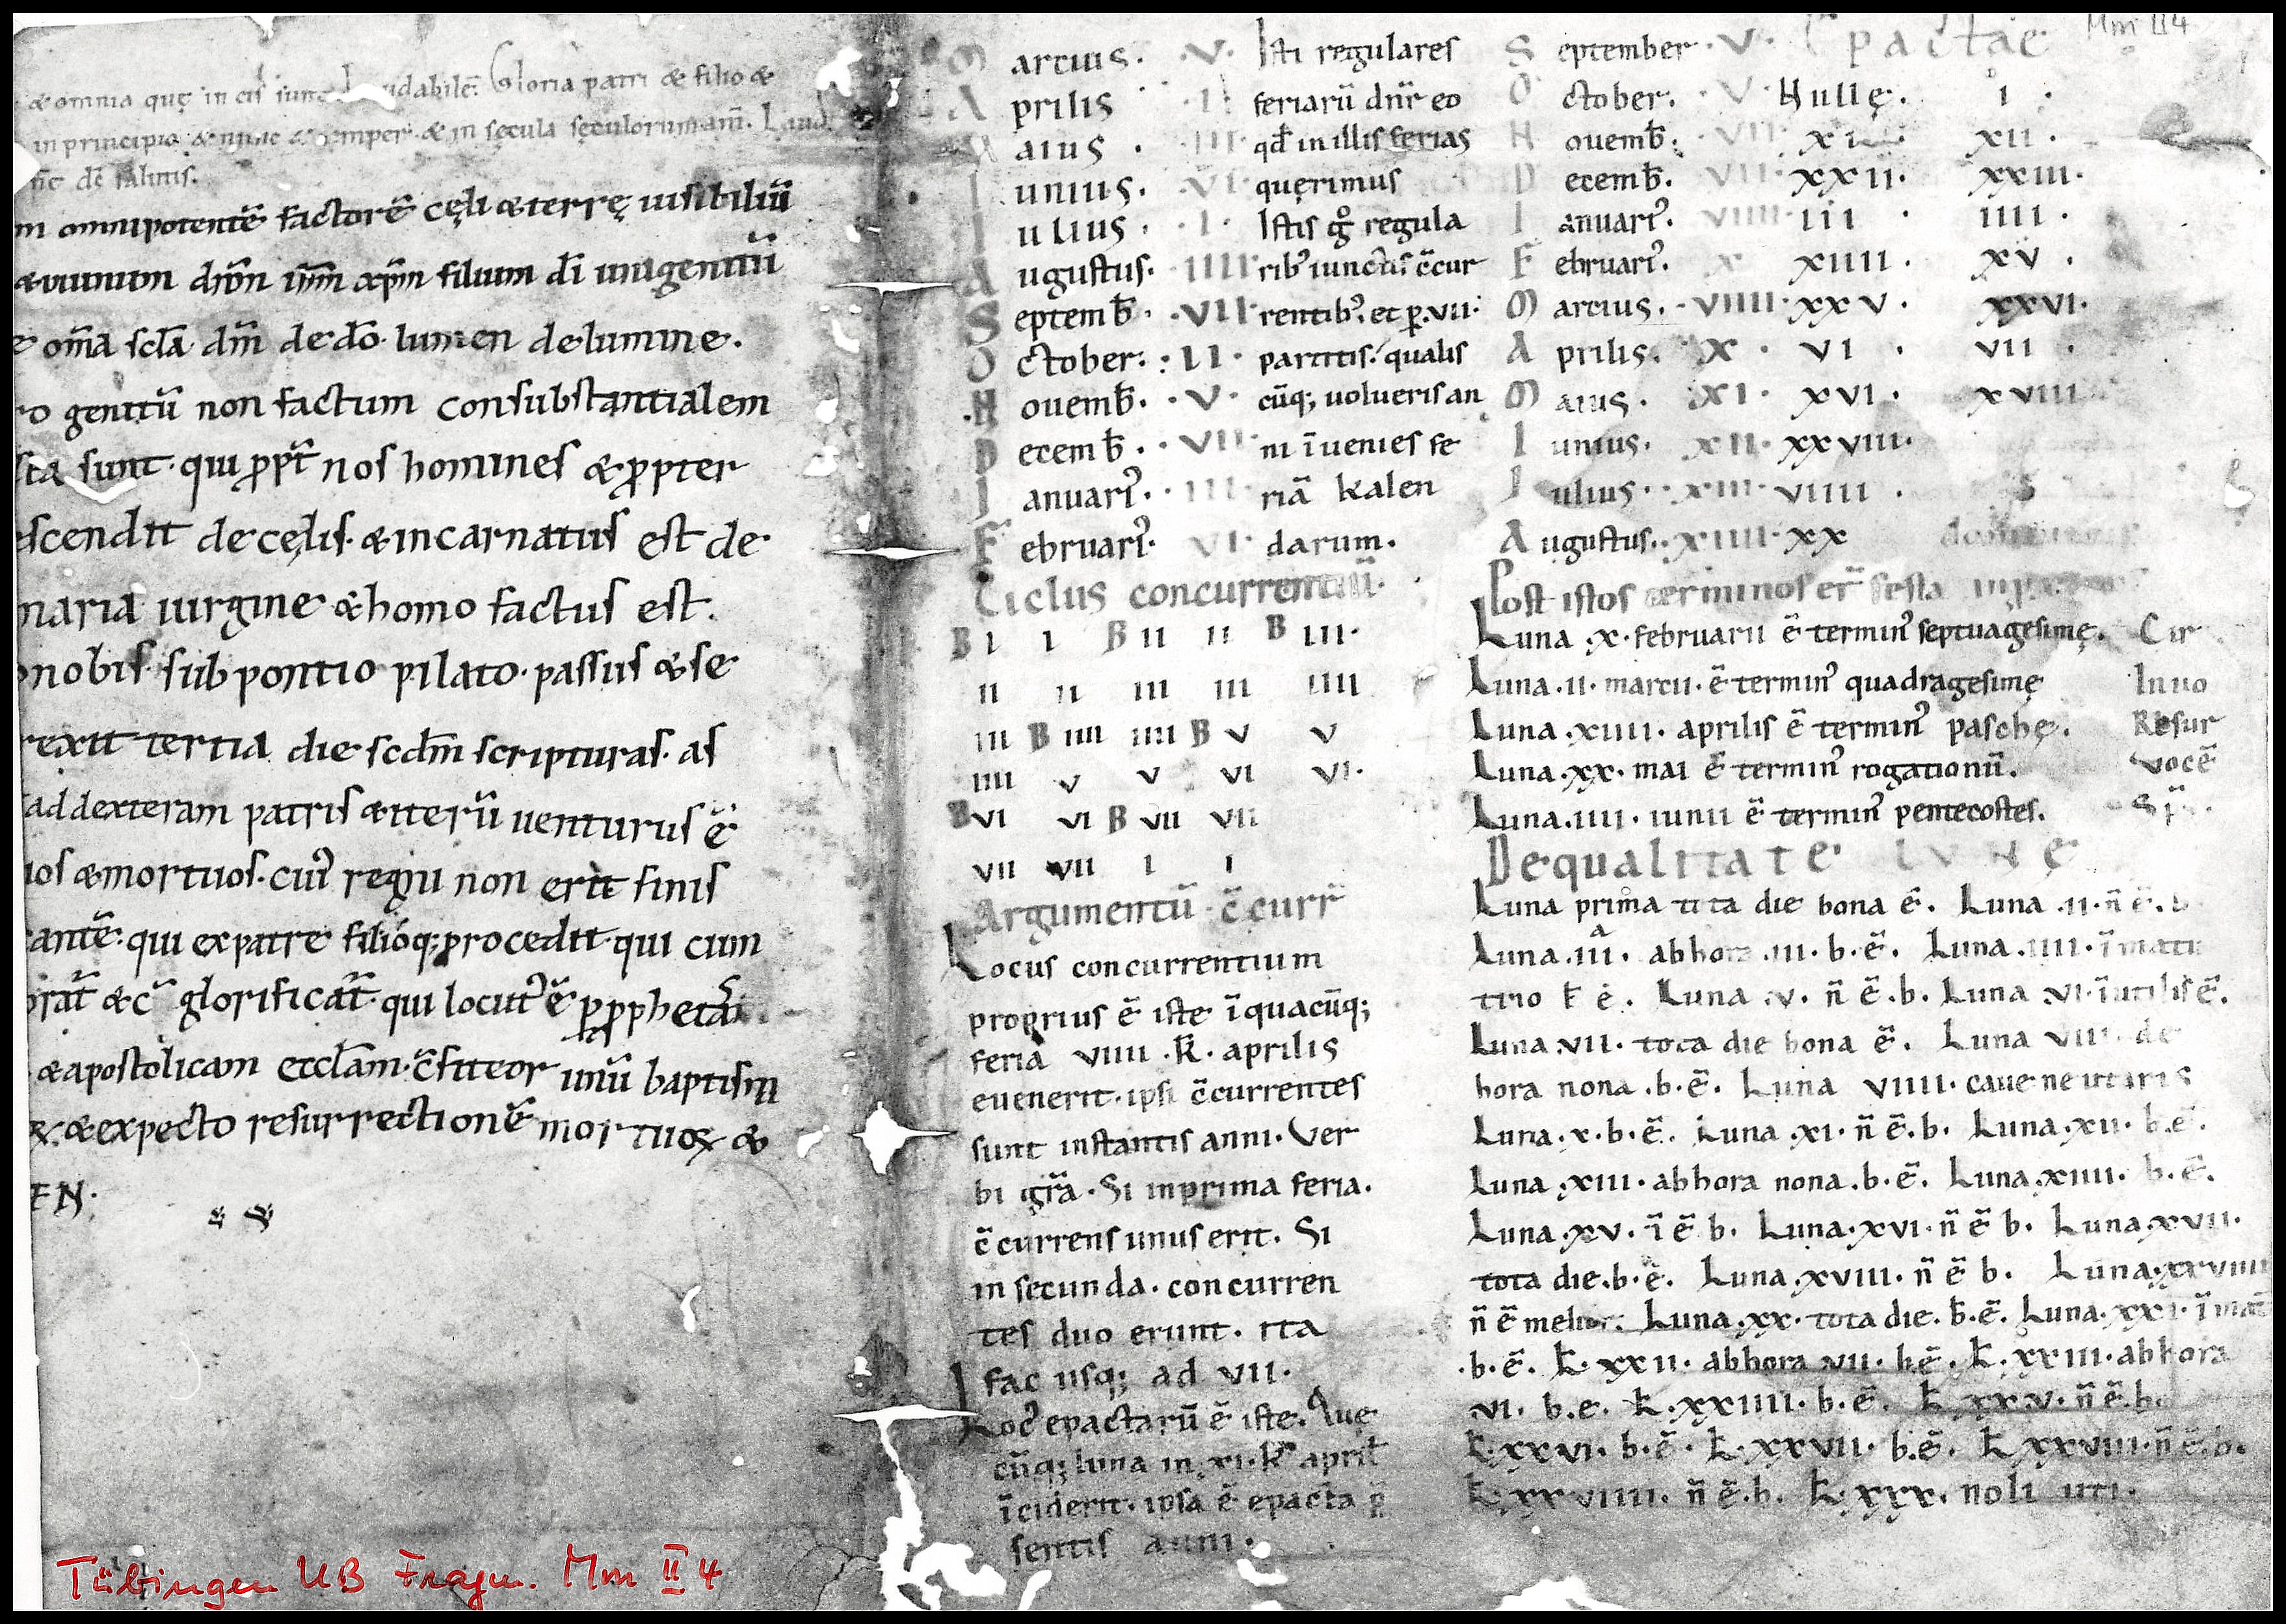 Mm II 4
& omnia quę in eis sunt Laudabilē. Gloria patri & filio &
in principio & nunc & semper & in sęcula sęculorum am̄. Laud
n̄c dē salutis.
m omnipotentē factorē cęli & terrę uisibiliū
& in unum dn̄m ih̄m xp̄m filium dī unigenitū
e om̄a sc̄la dm̄ de dō lumen de lumine.
ro genitū non factum consubstantialem
cta sunt. qui ꝓpt̄ nos homines & ꝓpter
escendit de cęlis. & incarnatus est de
maria uirgine & homo factus est.
o nobis. sub pontio pilato. passus & se
rexit tertia die scdm̄ scripturas. as
ad dexteram patris & iterū uenturus ē
uos & mortuos. cui' regni non erit finis
cantē. qui ex patre filioq; procedit. qui cum
orat̄ & c̄ glorificat̄. qui locut' ē ꝑ ꝓphetas.
& apostolicam eccl̄am. c̄fiteor unū baptism
ꝝ. & expecto resurrectionē mortuoꝝ &
EN.
Martius. V. Isti regulares
Aprilis I feriarū dnr̄ eo
Maius . III qd̄ in illis ferias
Iunius. VI quęrimus
Iulius. I. Istis gͦ regula
Augustus. IIII rib' iunctis c̄cur
Septemb̄. VII rentib'. et ꝑ .VII.
October. II. partitis. qualis
Nouemb̄. V. cūq; uolueris an
Decemb̄. VII ni īuenies fe
Ianuari'. III riā kalen
Februari'. VI. darum.
Ciclus concurrentiū.
B I I B II II B III.
II II III III IIII
III B IIII IIII B V V
IIII V V VI VI.
B VI VI B VII VII
VII VII I I
Argumentū c̄curr̄
Locus concurrentium
proprius ē iste ī quacūq;
feria VIIII .K̄. aprilis
euenerit. ipsi c̄currentes
sunt instantis anni. Ver
bi gr̄a. Si in prima feria.
c̄currens unus erit. Si
in secunda. concurren
tes duo erunt. ita
fac usq; ad VII.
Loc' epactarū ē iste. Que
cūq; luna in XI. kł april̄
īciderit. ipsa ē epacta p̄
sentis anni.
September. V. Epactae
October. V Nullę. I .
Nouemb̄. VII XI XII.
Decemb̄. VII XXII. XXIII.
Ianuari'. VIIII III . IIII.
Februari'. X XIIII. XV.
Martius. VIIII XXV. XXVI.
Aprilis. X. VI . VII .
Maius. XI. XVI. XVIII
Iunius. XII. XXVIII.
Iulius. XIII VIIII .
Augustus. XIIII. XX
Post istos terminos er̄ festa
Luna .X. februarii ē termin' septuagesimę. Cir
Luna .II. martii. ē termin' quadragesimę Inuo
Luna .XIIII. aprilis ē termin' paschę. Resur
Luna .XX. mai ē termin' rogationū. Vocē
Luna .IIII. iunii ē termin' pentecostes. Sp̄.
De qualitate LVNĘ
Luna prima tota die bona ē. Luna .II. n̄ ē. b
Luna .III. ab hora .III. b. ē. Luna .IIII. ī matu
tino b ē. Luna .V. n̄ ē .b. Luna VI. īutilis ē.
Luna .VII. tota die bona ē. Luna VIII. de
hora nona .b. ē. Luna VIIII. caue ne utaris
Luna .X. b. ē. Luna .XI. n̄ ē. b. Luna .XII. b. ē.
Luna .XIII. ab hora nona .b. ē. Luna .XIIII. b. ē.
Luna .XV. ī ē b. Luna .XVI. n̄ ē b. Luna .XVII.
tota die .b. ē. Luna .XVIII. n̄ ē b. Luna .XXVIIII
n̄ ē melior. Luna .XX. tota die. b. ē. Luna .XXI. ī mat̄
.b. ē. Ł. XXII. ab hora VII. b ē. Ł. XXIII. ab hora
VI. b. e. Ł. XXIIII. b. ē. Ł XXV. n̄ ē. b.
Ł. XXVI. b. ē. Ł. XXVII. b. ē. Ł XXVIII. n̄ ē. b.
Ł. XXVIIII. n̄ ē. b. Ł. XXX. noli uti.
Tübingen UB Fragm. Mm II 4